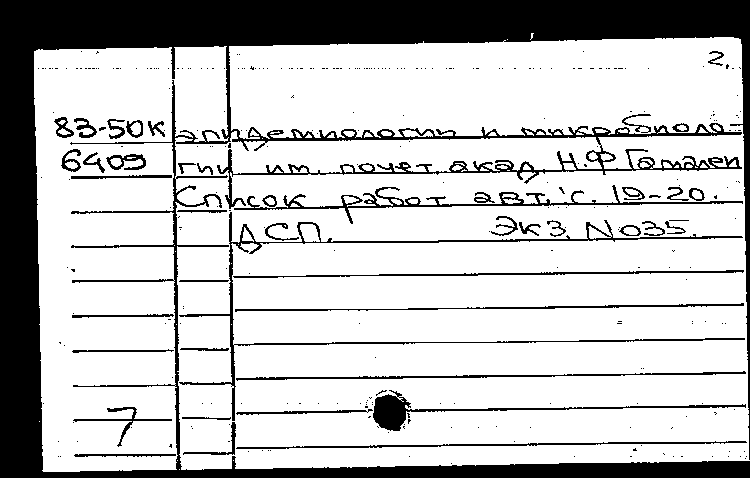 2.
83-50к эпидемиологии и микробиоло-
6409 гии им. почет. акад. Н.Ф. Гамалеи
Список работ авт.: с. 19-20.
ДСП. Экз. N 035.
7